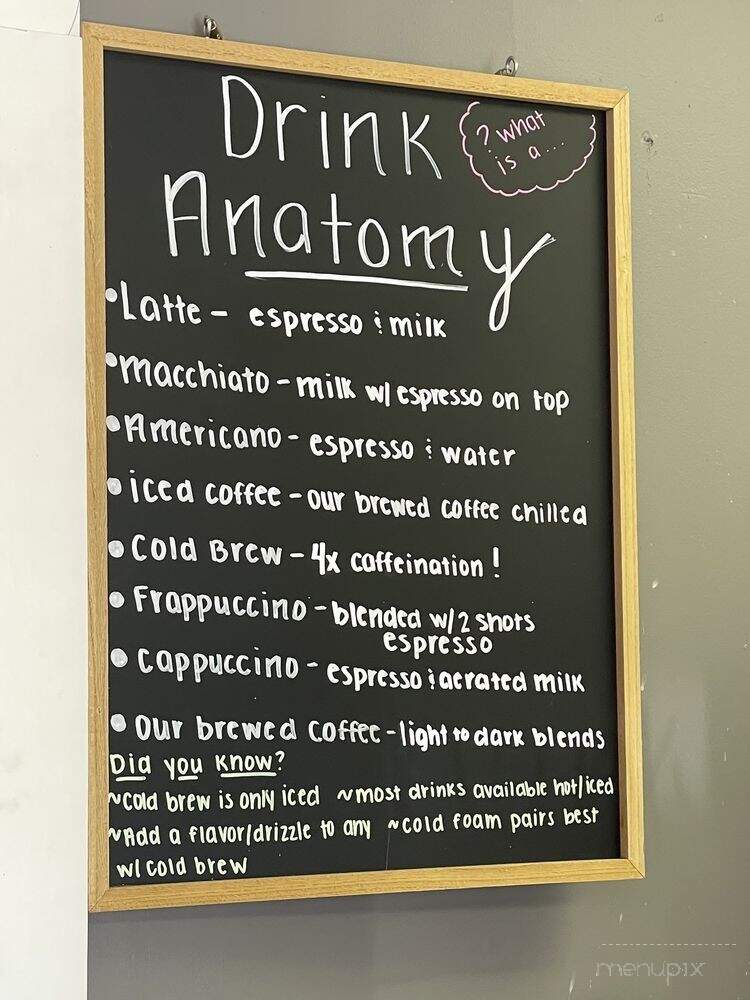 Drink
? what
is a....
Anatomy
• Latte - espresso & milk
• Macchiato - milk w/ espresso on top
• Americano - espresso & water
• iced coffee - our brewed coffee chilled
• Cold Brew - 4x caffeination!
• Frappuccino - blended w/ 2 shots
espresso
• cappuccino - espresso & aerated milk
• our brewed coffee - light to dark blends
Did you know?
~cold brew is only iced ~most drinks available hot/iced
~Add a flavor/drizzle to any ~cold foam pairs best
w/ cold brew
menupix